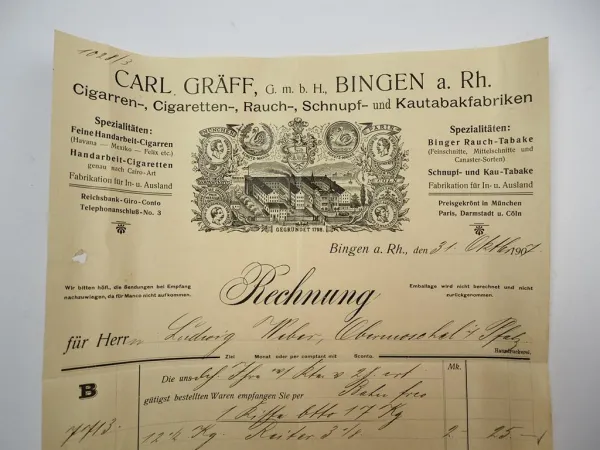 1028/3
CARL GRÄFF, G. m. b. H., BINGEN a. Rh.
Cigarren-, Cigaretten-, Rauch-, Schnupf- und Kautabakfabriken
Spezialitäten:
Feine Handarbeit-Cigarren
(Havana — Mexiko — Felix etc.)
Handarbeit-Cigaretten
genau nach Cairo-Art
Fabrikation für In- u. Ausland
Reichsbank-Giro-Conto
Telephonanschluß-No. 3
MÜNCHEN
PARIS
GEGRÜNDET 1798.
Spezialitäten:
Binger Rauch-Tabake
(Feinschnitte, Mittelschnitte und
Canaster-Sorten)
Schnupf- und Kau-Tabake
Fabrikation für In- u. Ausland
Preisgekrönt in München
Paris, Darmstadt u. Cöln
Bingen a. Rh., den 31. Oktb 1907.
Wir bitten höfl., die Sendungen bei Empfang
nachzuwiegen, da für Manco nicht aufkommen.
Rechnung
Emballage wird nicht berechnet und nicht
zurückgenommen.
für Herrn Ludwig Weber, Obermoschel i/ Pfalz
Ziel Monat oder per comptant mit Sconto.
B
Die uns
Mk.
gütigst bestellten Waren empfangen Sie per
1 Kiste btto 17 Kg
7713 12 1/2 Kg. Reiter 3/8 2 - 25 -